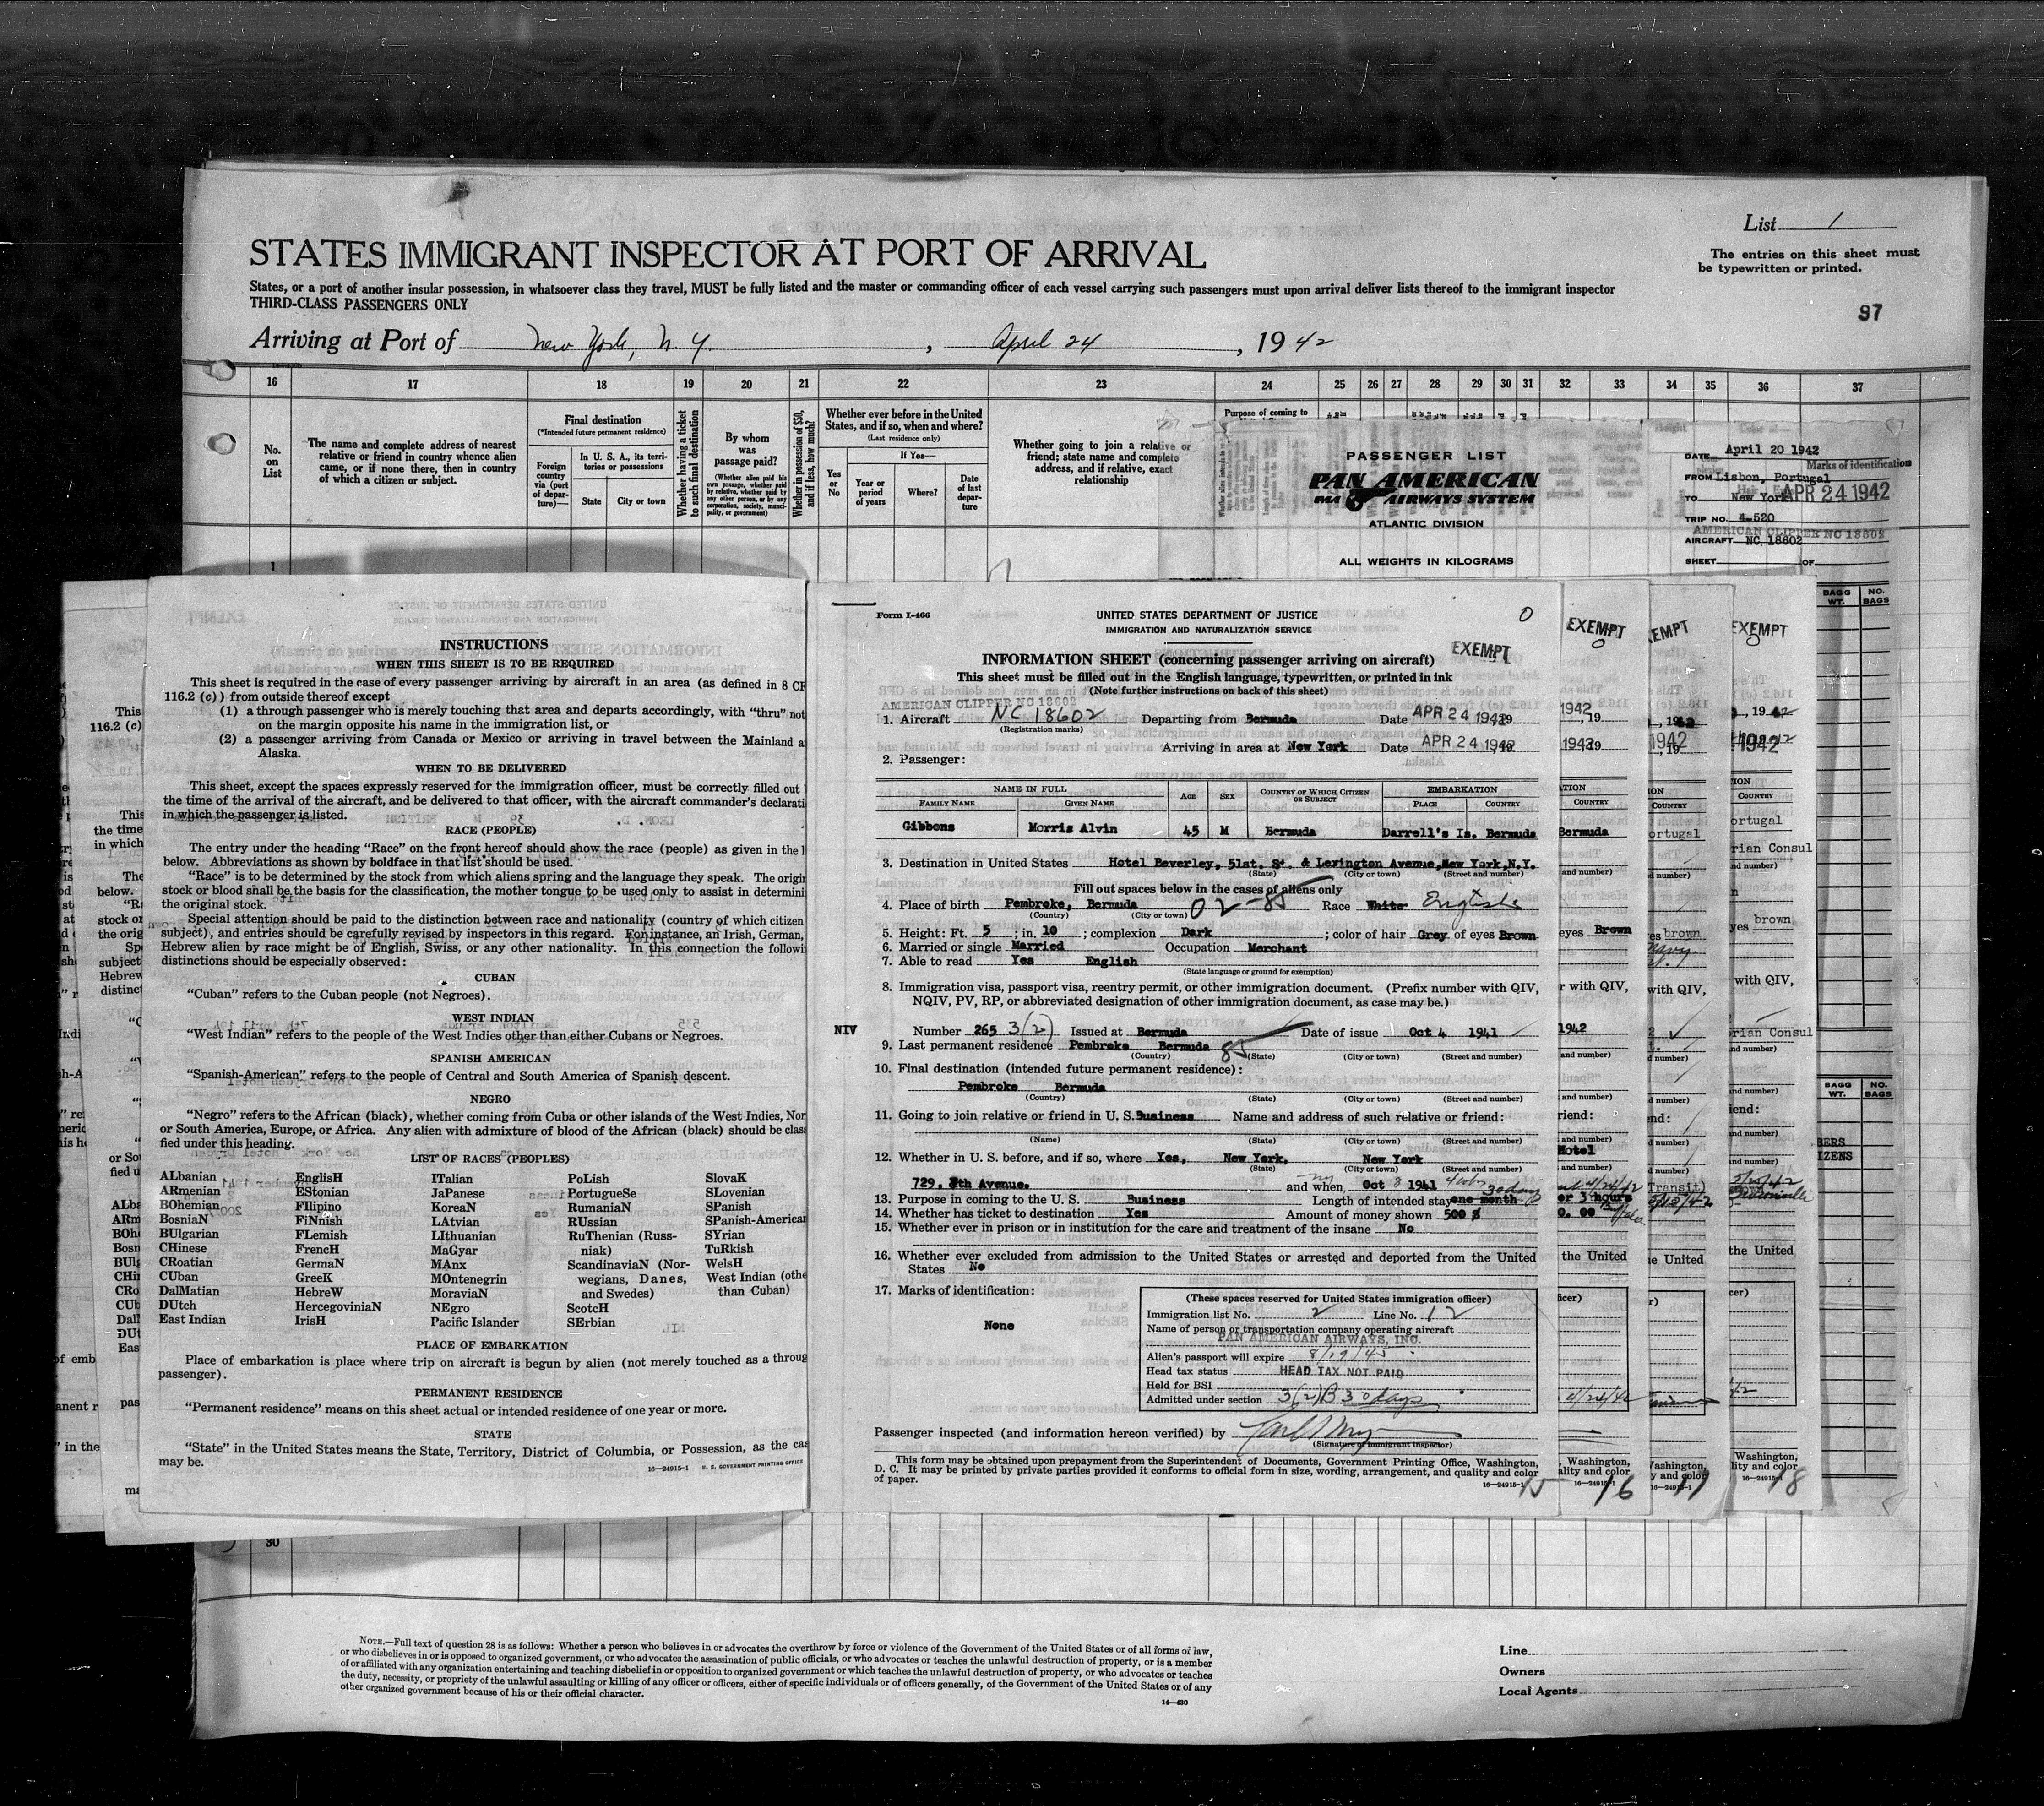 List 1
STATES IMMIGRANT INSPECTOR AT PORT OF ARRIVAL
The entries on this sheet must
be typewritten or printed.
States, or a port of another insular possession, in whatsoever class they travel, MUST be fully listed and the master or commanding officer of each vessel carrying such passengers must upon arrival deliver lists thereof to the immigrant inspector
THIRD-CLASS PASSENGERS ONLY
97
Arriving at Port of New York, N. Y. , April 24 , 19 42
16 17 18 19 20 21 22 23 24 25 26 27 28 29 30 31 32 33 34 35 36 37
No.
on
List
The name and complete address of nearest
relative or friend in country whence alien
came, or if none there, then in country
of which a citizen or subject.
Final destination
(*Intended future permanent residence)
Foreign
country
via (port
of depar-
ture)—
In U. S. A., its terri-
tories or possessions
State City or town
Whether having a ticket
to such final destination
By whom
was
passage paid?
(Whether alien paid his
own passage, whether paid
by relative, whether paid by
any other person, or by any
corporation, society, munici-
pality, or government)
Whether in possession of $50,
and if less, how much?
Whether ever before in the United
States, and if so, when and where?
(Last residence only)
If Yes—
Yes
or
No
Year or
period
of years
Where?
Date
of last
depar-
ture
Whether going to join a relative or
friend; state name and complete
address, and if relative, exact
relationship
Purpose of coming to
PASSENGER LIST
PAN AMERICAN
AIRWAYS SYSTEM
ATLANTIC DIVISION
ALL WEIGHTS IN KILOGRAMS
DATE April 20 1942
Marks of identification
FROM Lisbon, Portugal
TO New York APR 24 1942
TRIP NO. 4-520
AMERICAN CLIPPER NC 18602
AIRCRAFT NC 18602
SHEET OF
BAGG
WT.
NO.
BAGS
1
INSTRUCTIONS
WHEN THIS SHEET IS TO BE REQUIRED
This sheet is required in the case of every passenger arriving by aircraft in an area (as defined in 8 CF
116.2 (c)) from outside thereof except
(1) a through passenger who is merely touching that area and departs accordingly, with "thru" not
on the margin opposite his name in the immigration list, or
(2) a passenger arriving from Canada or Mexico or arriving in travel between the Mainland a
Alaska.
WHEN TO BE DELIVERED
This sheet, except the spaces expressly reserved for the immigration officer, must be correctly filled out
the time of the arrival of the aircraft, and be delivered to that officer, with the aircraft commander's declarati
in which the passenger is listed.
RACE (PEOPLE)
The entry under the heading "Race" on the front hereof should show the race (people) as given in the l
below. Abbreviations as shown by boldface in that list should be used.
"Race" is to be determined by the stock from which aliens spring and the language they speak. The origin
stock or blood shall be the basis for the classification, the mother tongue to be used only to assist in determini
the original stock.
Special attention should be paid to the distinction between race and nationality (country of which citizen
subject), and entries should be carefully revised by inspectors in this regard. For instance, an Irish, German,
Hebrew alien by race might be of English, Swiss, or any other nationality. In this connection the followi
distinctions should be especially observed:
CUBAN
"Cuban" refers to the Cuban people (not Negroes).
WEST INDIAN
"West Indian" refers to the people of the West Indies other than either Cubans or Negroes.
SPANISH AMERICAN
"Spanish-American" refers to the people of Central and South America of Spanish descent.
NEGRO
"Negro" refers to the African (black), whether coming from Cuba or other islands of the West Indies, Nor
or South America, Europe, or Africa. Any alien with admixture of blood of the African (black) should be clas
fied under this heading.
LIST OF RACES (PEOPLES)
ALbanian EnglisH ITalian PoLish SlovaK
ARmenian EStonian JaPanese PortugueSe SLovenian
BOhemian FIlipino KoreaN RumaniaN SPanish
BosniaN FiNnish LAtvian RUssian SPanish-American
BUlgarian FLemish LIthuanian RuThenian (Russ- SYrian
CHinese FrencH MaGyar niak) TuRkish
CRoatian GermaN MAnx ScandinaviaN (Nor- WelsH
CUban GreeK MOntenegrin wegians, Danes, West Indian (othe
DalMatian HebreW MoraviaN and Swedes) than Cuban)
DUtch HercegoviniaN NEgro ScotcH
East Indian IrisH Pacific Islander SErbian
PLACE OF EMBARKATION
Place of embarkation is place where trip on aircraft is begun by alien (not merely touched as a throug
passenger).
PERMANENT RESIDENCE
"Permanent residence" means on this sheet actual or intended residence of one year or more.
STATE
"State" in the United States means the State, Territory, District of Columbia, or Possession, as the cas
may be.
16—24915-1 U. S. GOVERNMENT PRINTING OFFICE
Form I-466
UNITED STATES DEPARTMENT OF JUSTICE
IMMIGRATION AND NATURALIZATION SERVICE
0
EXEMPT
INFORMATION SHEET (concerning passenger arriving on aircraft)
This sheet must be filled out in the English language, typewritten, or printed in ink
(Note further instructions on back of this sheet)
AMERICAN CLIPPER NC 18602
1. Aircraft NC 18602 Departing from Bermuda Date APR 24 1942 19
(Registration marks)
Arriving in area at New York Date APR 24 1942, 19
2. Passenger:
NAME IN FULL AGE SEX COUNTRY OF WHICH CITIZEN OR SUBJECT EMBARKATION
FAMILY NAME GIVEN NAME PLACE COUNTRY
Gibbons Morris Alvin 45 M Bermuda Darrell's Is. Bermuda
3. Destination in United States Hotel Beverley, 51st. St. & Lexington Avenue, New York, N.Y.
(State) (City or town) (Street and number)
Fill out spaces below in the cases of aliens only
4. Place of birth Pembroke, Bermuda 02-85 Race White English
(Country) (City or town)
5. Height: Ft. 5 ; in. 10 ; complexion Dark ; color of hair Grey of eyes Brown
6. Married or single Married Occupation Merchant
7. Able to read Yes English
(State language or ground for exemption)
8. Immigration visa, passport visa, reentry permit, or other immigration document. (Prefix number with QIV,
NQIV, PV, RP, or abbreviated designation of other immigration document, as case may be.)
NIV Number 265 3(2) Issued at Bermuda Date of issue Oct 4 1941
9. Last permanent residence Pembroke Bermuda 85
(Country) (State) (City or town) (Street and number)
10. Final destination (intended future permanent residence):
Pembroke Bermuda
(Country) (State) (City or town) (Street and number)
11. Going to join relative or friend in U. S. Business Name and address of such relative or friend:
(Name) (State) (City or town) (Street and number)
12. Whether in U. S. before, and if so, where Yes, New York, New York
(State) (City or town) (Street and number)
729, 8th Avenue. and when Oct 8 1941
13. Purpose in coming to the U. S. Business Length of intended stay one month 30 days
14. Whether has ticket to destination Yes Amount of money shown 500 $
15. Whether ever in prison or in institution for the care and treatment of the insane No
16. Whether ever excluded from admission to the United States or arrested and deported from the United
States No
17. Marks of identification:
None
(These spaces reserved for United States immigration officer)
Immigration list No. 2 Line No. 12
Name of person or transportation company operating aircraft
PAN AMERICAN AIRWAYS, INC.
Alien's passport will expire 8/19/45
Head tax status HEAD TAX NOT PAID
Held for BSI
Admitted under section 3(2)B 30 days
Passenger inspected (and information hereon verified) by
(Signature of immigrant inspector)
This form may be obtained upon prepayment from the Superintendent of Documents, Government Printing Office, Washington,
D. C. It may be printed by private parties provided it conforms to official form in size, wording, arrangement, and quality and color
of paper.
16—24915-1 15
EXEMPT
16
17
EXEMPT
18
30
NOTE.—Full text of question 28 is as follows: Whether a person who believes in or advocates the overthrow by force or violence of the Government of the United States or of all forms of law,
or who disbelieves in or is opposed to organized government, or who advocates the assassination of public officials, or who advocates or teaches the unlawful destruction of property, or is a member
of or affiliated with any organization entertaining and teaching disbelief in or opposition to organized government or which teaches the unlawful destruction of property, or who advocates or teaches
the duty, necessity, or propriety of the unlawful assaulting or killing of any officer or officers, either of specific individuals or of officers generally, of the Government of the United States or of any
other organized government because of his or their official character.
14—430
Line
Owners
Local Agents